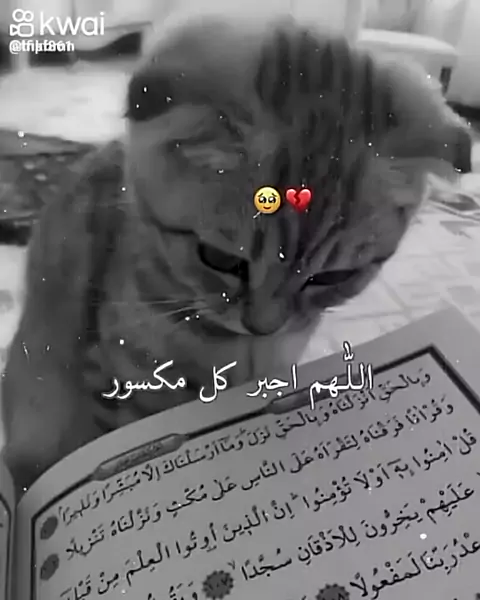 kwai
🥹💔
اللّٰهم اجبر كل مكسور
وَبِالْحَقِّ اَنْزَلْنَاهُ وَبِالْحَقِّ نَزَلَ وَمَا اَرْسَلْنَاكَ اِلَّا مُبَشِّرًا وَنَذِيرًا
وَقُرْاٰنًا فَرَقْنَاهُ لِتَقْرَاَهُ عَلَى النَّاسِ عَلٰى مُكْثٍ وَنَزَّلْنَاهُ تَنْزِيلًا
قُلْ اٰمِنُوا بِهٖٓ اَوْ لَا تُؤْمِنُوا اِنَّ الَّذِينَ اُوتُوا الْعِلْمَ مِنْ
عَلَيْهِمْ يَخِرُّونَ لِلْاَذْقَانِ سُجَّدًا
رَبِّنَا لَمَفْعُولًا